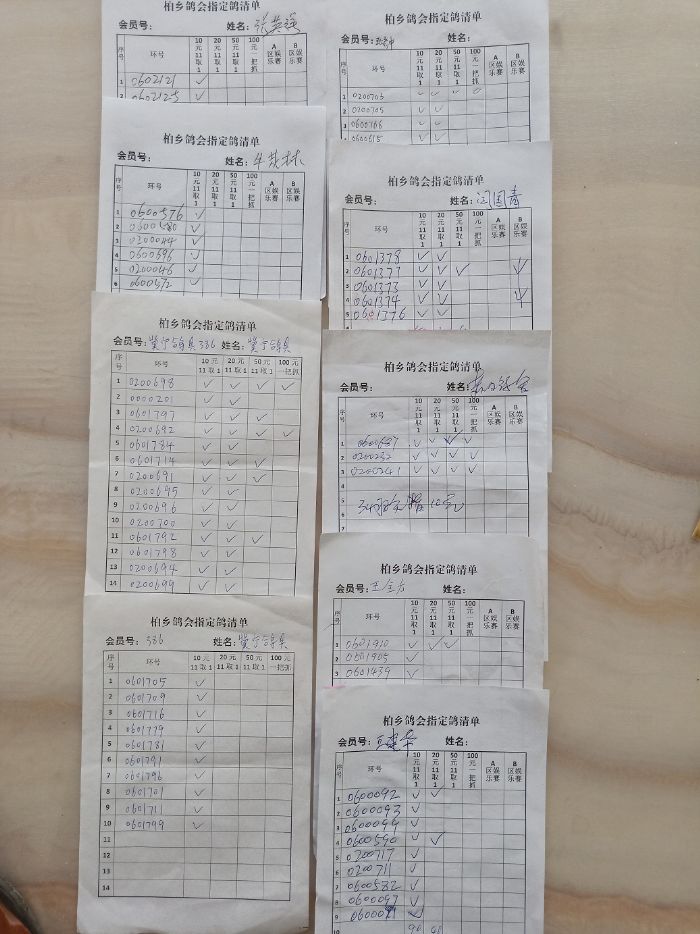 柏乡鸽会指定鸽清单
会员号： 姓名：张英强
序号 环号 10元11取1 20元11取1 50元11取1 100元一把抓 A区娱乐赛 B区娱乐赛
1 0602121 ✓
2 0602125 ✓
柏乡鸽会指定鸽清单
会员号： 姓名：
序号 环号 10元11取1 20元11取1 50元11取1 100元一把抓 A区娱乐赛 B区娱乐赛
1 0600576 ✓
2 0600580 ✓
3 0200044 ✓
4 0600696 ✓
5 0200046 ✓
6 0600572 ✓
柏乡鸽会指定鸽清单
会员号： 336 姓名：
序号 环号 10元11取1 20元11取1 50元11取1 100元一把抓
1 0200698 ✓ ✓ ✓ ✓
2 0000201 ✓ ✓
3 0601797 ✓ ✓ ✓
4 0200692 ✓ ✓ ✓ ✓
5 0601784 ✓ ✓
6 0601714 ✓ ✓ ✓
7 0200691 ✓ ✓ ✓
8 0200695 ✓ ✓
9 0200696 ✓ ✓
10 0200700 ✓ ✓
11 0601792 ✓ ✓ ✓
12 0601798 ✓ ✓
13 0200694 ✓ ✓
14 0200699 ✓ ✓
柏乡鸽会指定鸽清单
会员号：336 姓名：
序号 环号 10元11取1 20元11取1 50元11取1 100元一把抓
1 0601705 ✓
2 0601709 ✓
3 0601716 ✓
4 0601779 ✓
5 0601781 ✓
6 0601791 ✓
7 0601796 ✓
8 0601701 ✓
9 0601711 ✓
10 0601799 ✓
11
12
13
14
柏乡鸽会指定鸽清单
会员号： 姓名：
序号 环号 10元11取1 20元11取1 50元11取1 100元一把抓 A区娱乐赛 B区娱乐赛
1 0200703 ✓ ✓ ✓ ✓
2 0200705 ✓ ✓
3 0600166 ✓ ✓
4 0600615 ✓ ✓
柏乡鸽会指定鸽清单
会员号： 姓名：闫国青
序号 环号 10元11取1 20元11取1 50元11取1 100元一把抓 A区娱乐赛 B区娱乐赛
1 0601378 ✓ ✓
2 0601377 ✓ ✓ ✓
3 0601373 ✓ ✓
4 0601374 ✓ ✓
5 0601376 ✓ ✓
柏乡鸽会指定鸽清单
会员号： 姓名：
序号 环号 10元11取1 20元11取1 50元11取1 100元一把抓 A区娱乐赛 B区娱乐赛
1 0600687 ✓ ✓ ✓ ✓
2 0200232 ✓ ✓ ✓ ✓
3 0200241 ✓ ✓ ✓ ✓
4
5
6
7
柏乡鸽会指定鸽清单
会员号：王全方 姓名：
序号 环号 10元11取1 20元11取1 50元11取1 100元一把抓 A区娱乐赛 B区娱乐赛
1 0601910 ✓ ✓ ✓
2 0601905 ✓
3 0601439 ✓
柏乡鸽会指定鸽清单
会员号： 姓名：
序号 环号 10元11取1 20元11取1 50元11取1 100元一把抓 A区娱乐赛 B区娱乐赛
1 0600092 ✓ ✓
2 0600093 ✓
3 0600099 ✓
4 0600590 ✓ ✓
5 0200717 ✓
6 0200711 ✓
7 0600582 ✓
8 0600097 ✓
9 0600091 ✓
10 90